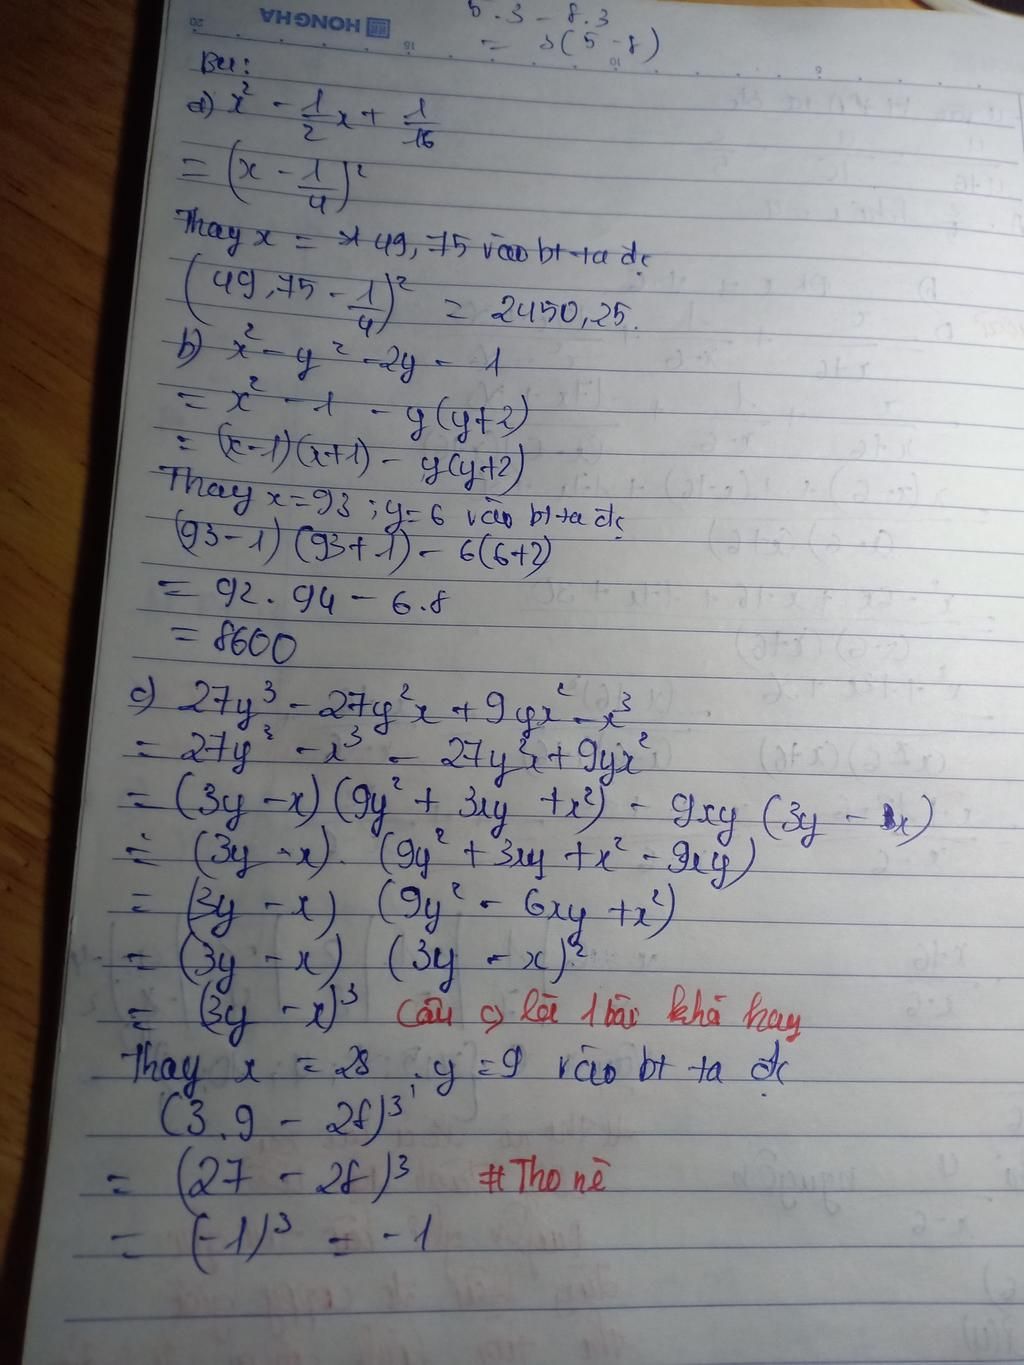 HONG HA
20
15
10
5.3 - 8.3
= 3(5-8)
Bài:
a) x² - 1/2 x + 1/16
= (x - 1/4)²
Thay x = 49,75 vào bt ta đc
(49,75 - 1/4)² = 2450,25.
b) x² - y² - 2y - 1
= x² - 1 - y(y+2)
= (x-1)(x+1) - y(y+2)
Thay x=93 ; y=6 vào bt ta đc
(93-1) (93+1) - 6(6+2)
= 92.94 - 6.8
= 8600
c) 27y³ - 27y²x + 9yx² - x³
= 27y³ - x³ - 27y²x + 9yx²
= (3y - x) (9y² + 3xy + x²) - 9xy (3y - x)
= (3y - x). (9y² + 3xy + x² - 9xy)
= (3y - x) (9y² - 6xy + x²)
= (3y - x) (3y - x)²
= (3y - x)³ Câu c) là 1 bài khá hay
Thay x = 28 ; y = 9 vào bt ta đc
(3.9 - 28)³
= (27 - 28)³ #Tho nè
= (-1)³ = -1